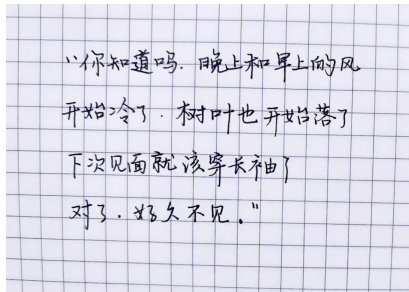 “你知道吗.晚上和早上的风
开始冷了.树叶也开始落了
下次见面就该穿长袖了
对了.好久不见。”